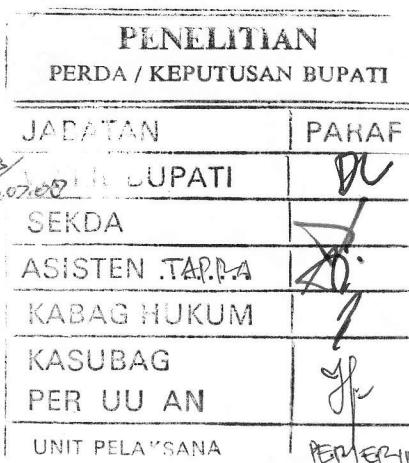 PENELITIAN
PERDA / KEPUTUSAN BUPATI
JABATAN PARAF
BUPATI
SEKDA
ASISTEN
KABAG HUKUM
KASUBAG
PER UU AN
UNIT PELAKSANA